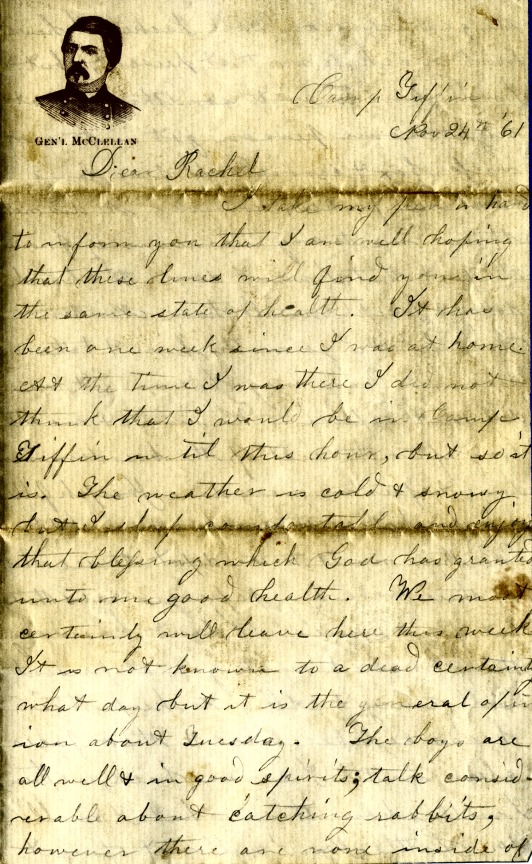 GEN'L McCLELLAN
Camp Tiffin
Nov 24th '61
Dear Rachel
I take my pen in hand
to inform you that I am well hoping
that these lines will find you in
the same state of health. It has
been one week since I was at home.
At the time I was there I did not
think that I would be in Camp
Tiffin until this hour, but so it
is. The weather is cold & snowy
but I sleep comfortabl and enjoy
that blessing which God has granted
unto me good health. We most
certainly will leave here this week
It is not known to a dead certainty
what day but it is the general opin
ion about Tuesday. The boys are
all well & in good spirits; talk consid-
erable about catching rabbits,
however there are none inside of